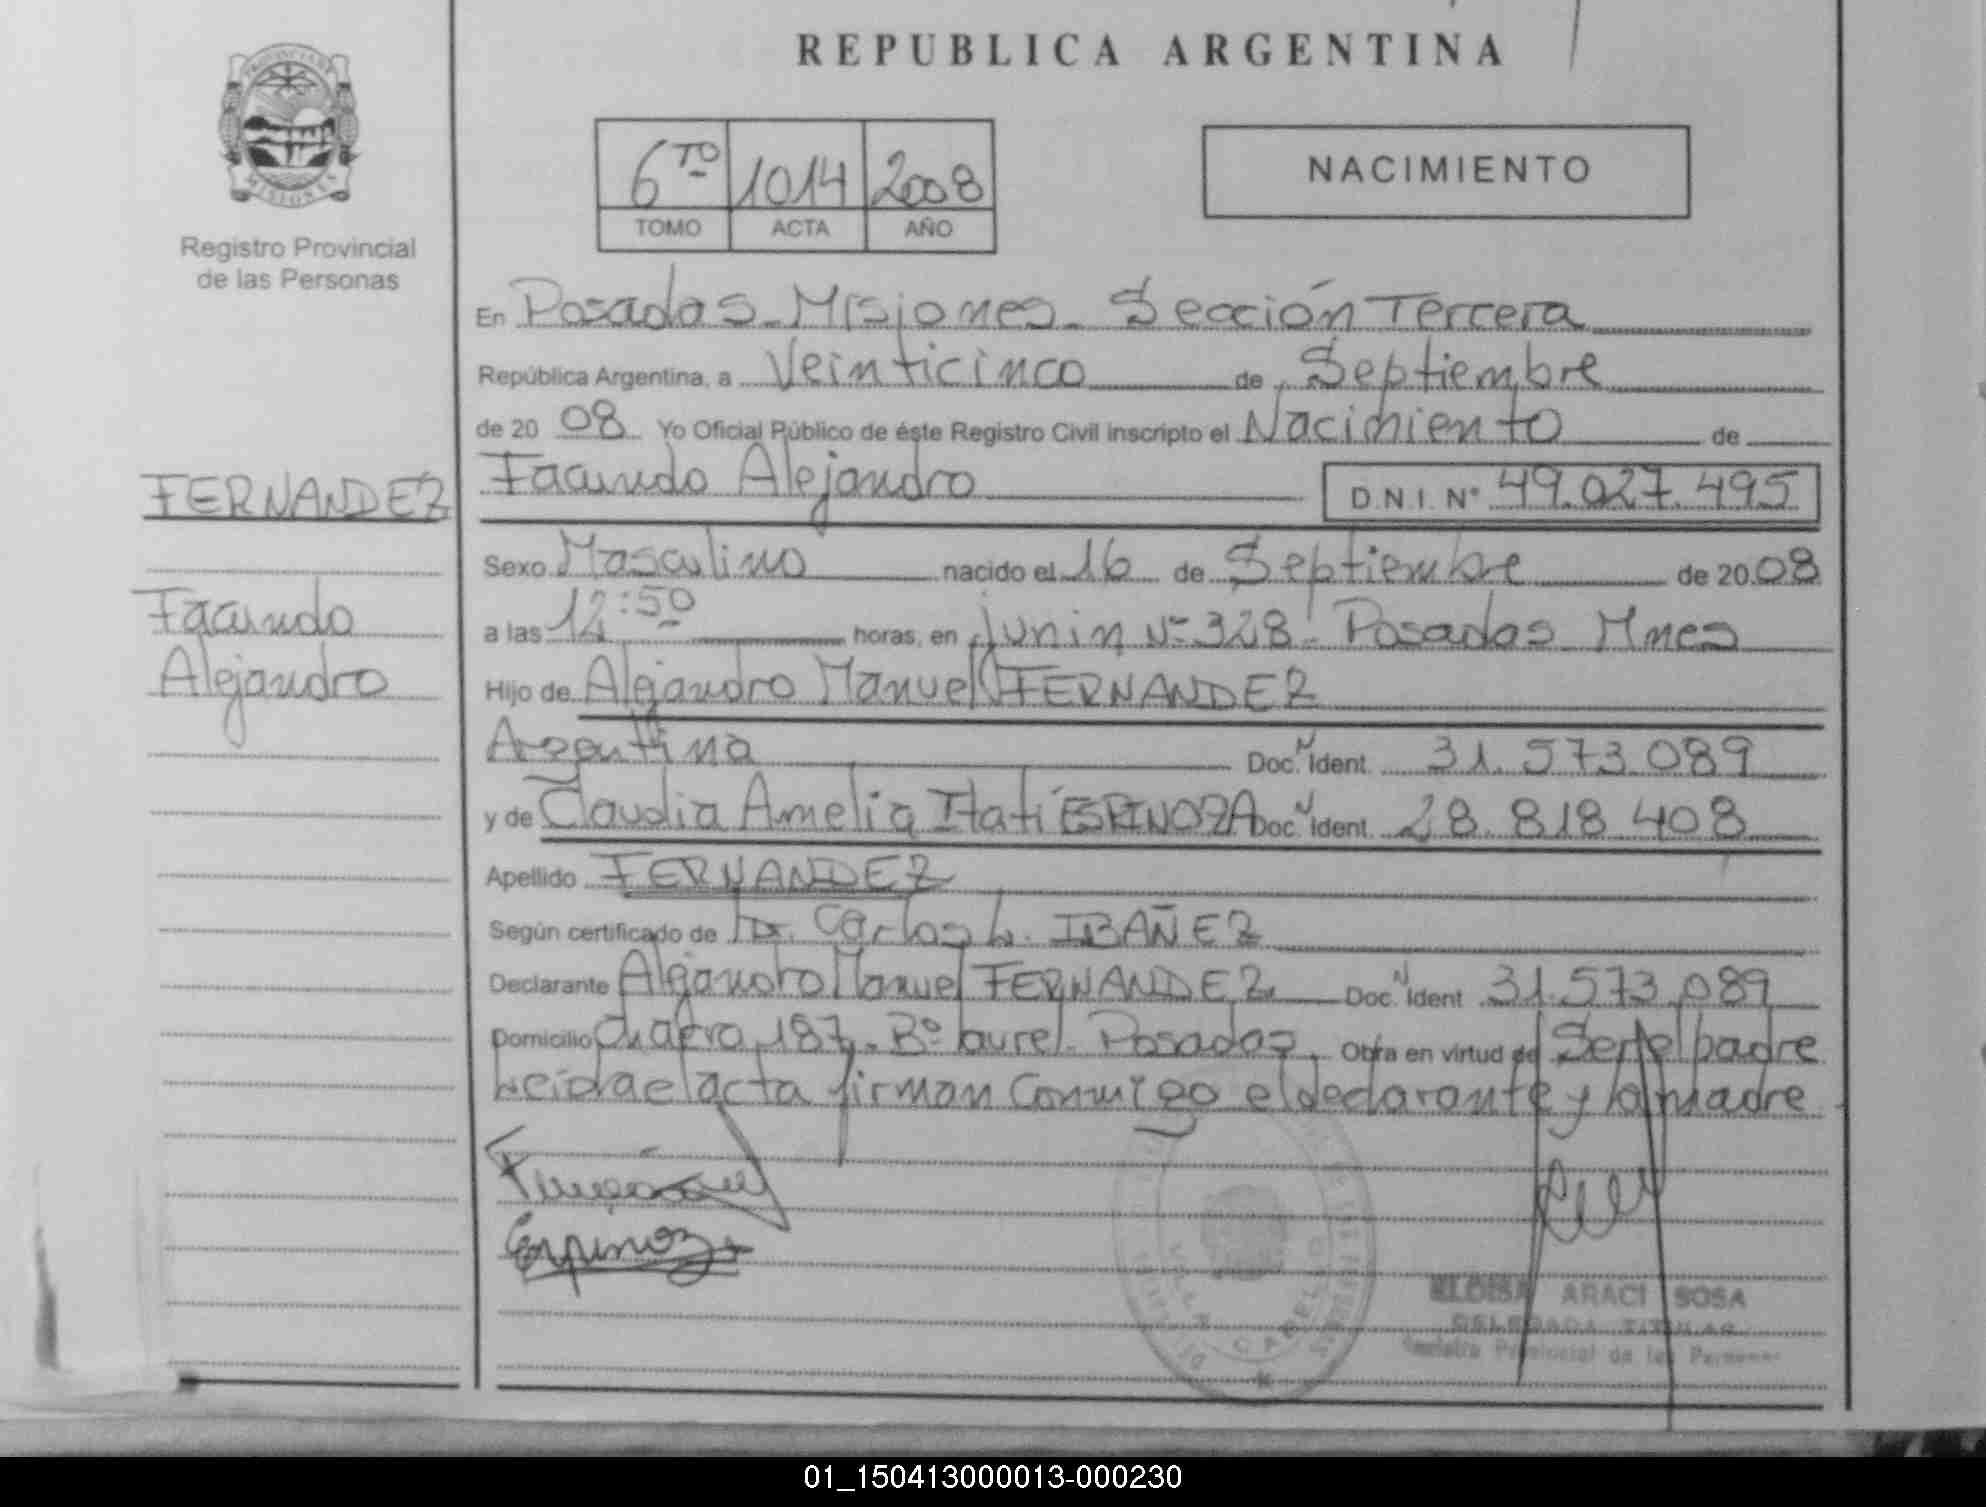 REPUBLICA ARGENTINA
PROVINCIA DE MISIONES
Registro Provincial
de las Personas
6TO 1014 2008
TOMO ACTA AÑO
NACIMIENTO
En Posadas - Misiones - Sección Tercera
República Argentina, a Veinticinco de Septiembre
de 20 08 Yo Oficial Público de éste Registro Civil inscripto el Nacimiento de
FERNANDEZ
Facundo Alejandro D.N.I. Nº 49.027.495
Sexo Masculino nacido el 16 de Septiembre de 2008
Facundo
Alejandro
a las 12:50 horas, en Junin Nº 328 - Posadas - Mnes
Hijo de Alejandro Manuel FERNANDEZ
Argentina Doc. Ident. 31.573.089
y de Claudia Amelia Itatí ESPINOZA Doc. Ident. 28.818.408
Apellido FERNANDEZ
Según certificado de Dr. Carlos L. IBAÑEZ
Declarante Alejandro Manuel FERNANDEZ Doc. Ident. 31.573.089
Domicilio Chacra 187 - Bº Laurel - Posadas. Obra en virtud de Ser el padre
Leida el acta firman Conmigo el declarante y la madre
Espinoza
ELOISA ARACI SOSA
DELEGADA TITULAR
Registro Provincial de las Personas
01_150413000013-000230